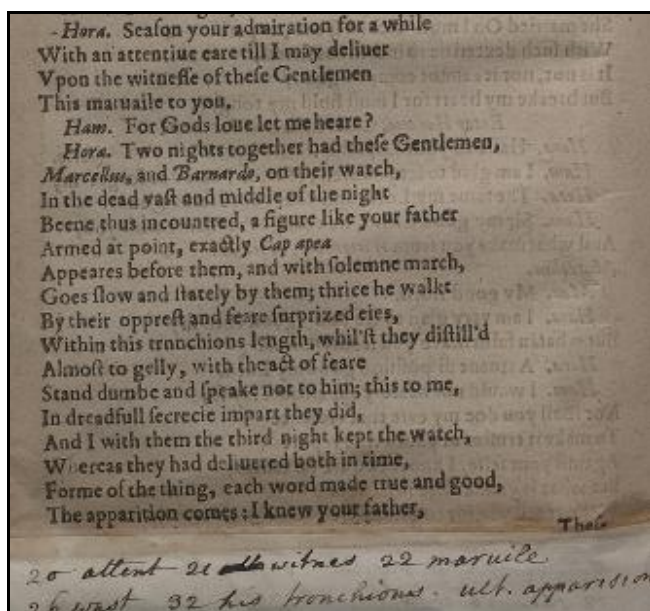 Hora. Seaſon your admiration for a while
With an attentiue eare till I may deliuer
Vpon the witneſſe of theſe Gentlemen
This maruaile to you.
Ham. For Gods loue let me heare?
Hora. Two nights together had theſe Gentlemen,
Marcellus, and Barnardo, on their watch,
In the dead vaſt and middle of the night
Beene thus incountred, a figure like your father
Armed at point, exactly Cap apea
Appeares before them, and with ſolemne march,
Goes ſlow and ſtately by them; thrice he walkt
By their oppreſt and feare ſurprized eies,
Within this tronchions length, whil'ſt they diſtill'd
Almoſt to gelly, with the act of feare
Stand dumbe and ſpeake not to him; this to me,
In dreadfull ſecrecie impart they did,
And I with them the third night kept the watch,
Whereas they had deliuered both in time,
Forme of the thing, each word made true and good,
The apparition comes: I knew your father,
Theſe
20 attent 21 witnes 22 maruile
26 wast 32 his tronchions. ult. apparision